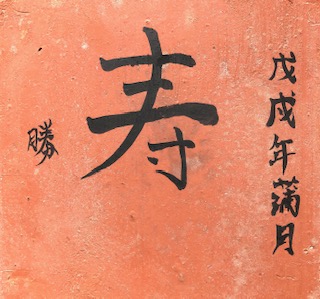 戊戌年蒲月
寿
勝